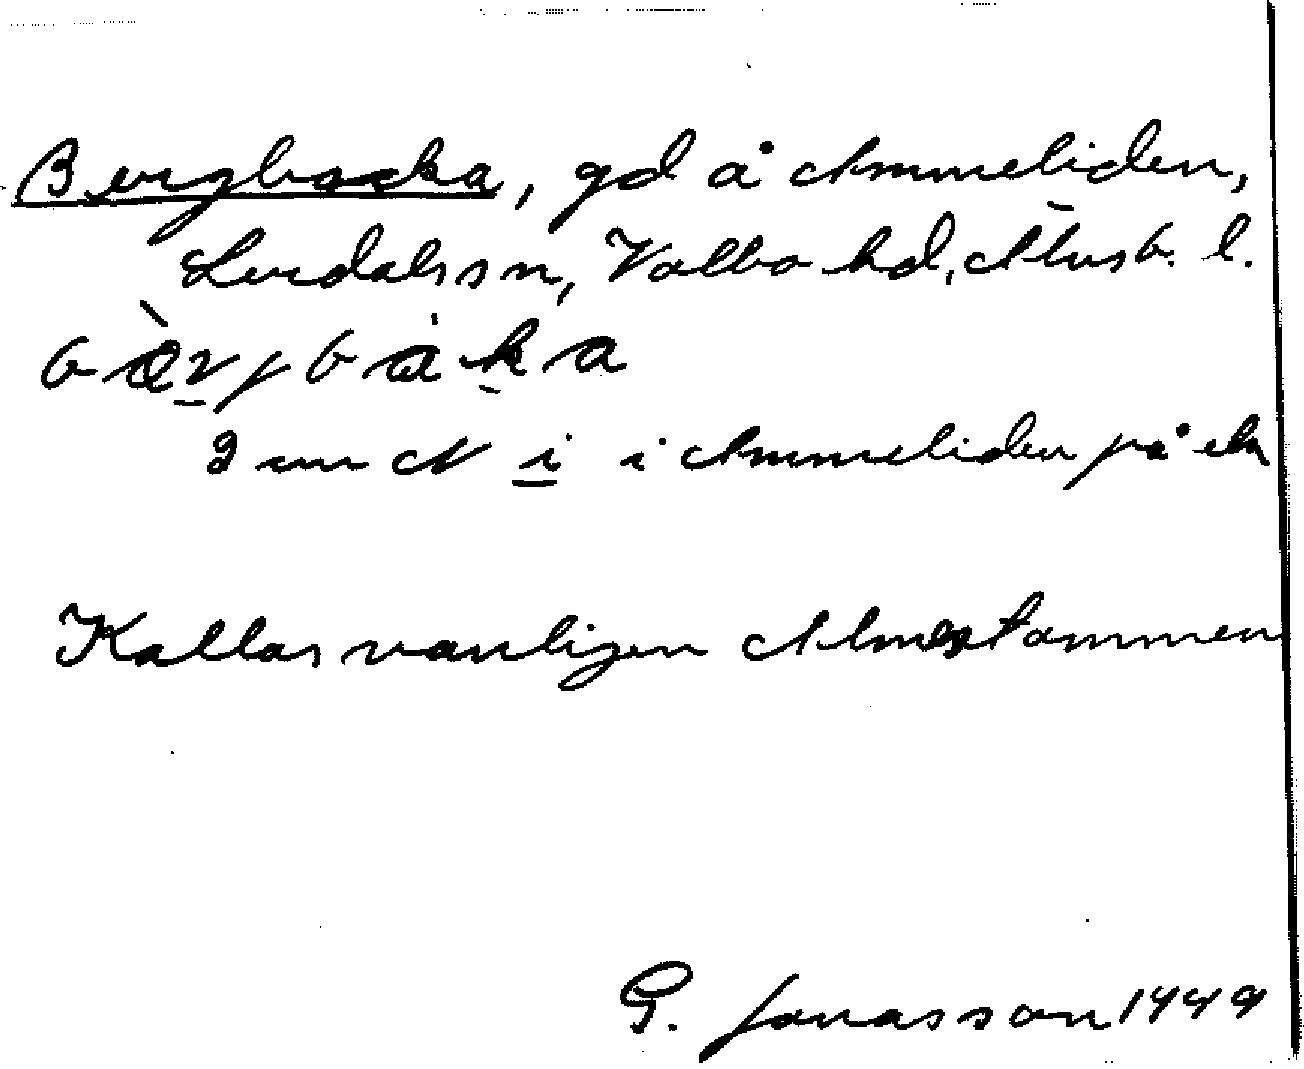 Bergbacka, gd å Ammeliden,
Lerdals sn, Valbo hd, Älvsb. l.
bærjbaka
i Ammeliden på ek
Kallas vanligen Almestammen
G. Jonasson 1949